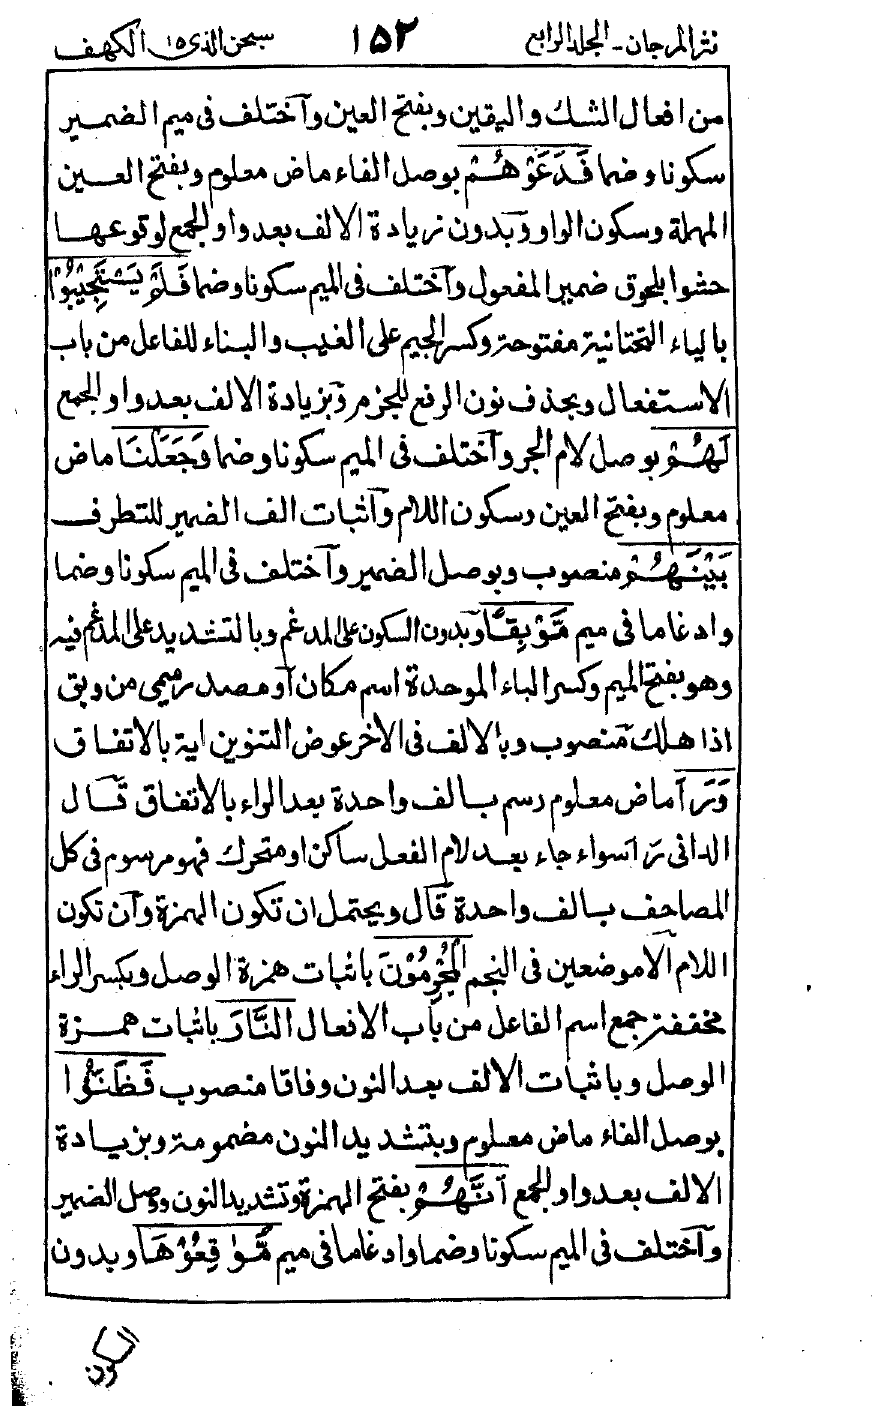 نثر المرجان - الجلد الرابع ١٥٢ سبحن الذى ١٥ الكهف
من افعال الشك واليقين وبفتح العين وآختلف فى ميم الضمير
سكونا وضما فَدَعَوْهُمْ بوصل الفاء ماض معلوم وبفتح العين
المهملة وسكون الواو وبَدون زيادة الالف بعد واو الجمع لوقوعها
حشوا بلحوق ضمير المفعول وآختلف فى الميم سكونا وضما فَلَمْ يَسْتَجِيْبُوْا
بالياء التحتانية مفتوحة وكسر الجيم على الغيب والبناء للفاعل من باب
الاستفعال وبحذف نون الرفع للجزم وَبزيادة الالف بعد واو الجمع
لَهُمْ بوصل لام الجر وآختلف فى الميم سكونا وضما وَجَعَلْنَا ماض
معلوم وبفتح العين وسكون اللام وآثبات الف الضمير للتطرف
بَيْنَهُمْ منصوب وبوصل الضمير وآختلف فى الميم سكونا وضما
وادغاما فى ميم مَّوْبِقًا وبَدون السكون على المدغم وبالتشديد على المدغم فيه
وهو بفتح الميم وكسر الباء الموحدة اسم مكان آو مصدر ميمى من وبق
اذا هلك مَنصوب وبالالف فى الاخر عوض التنوين اية بالاتفاق
وَرَاَ ماض معلوم رسم بالف واحدة بعد الراء بالاتفاق قَال
الدانى رَا سواء جاء بعد لام الفعل ساكن او متحرك فهو مرسوم فى كل
المصاحف بالف واحدة قَال ويحتمل ان تكون الهمزة وآن تكون
اللام آلا موضعين فى النجم الْمُجْرِمُوْنَ باثبات همزة الوصل وبكسر الراء
مخففة جمع اسم الفاعل من باب الافعال النَّارَ باثبات همزة
الوصل وباثبات الالف بعد النون وفاقا منصوب فَظَنُّوْا
بوصل الفاء ماض معلوم وبتشديد النون مضمومة وبزيادة
الالف بعد واو الجمع اَنَّهُمْ بفتح الهمزة وتشديد النون ووصل الضمير
وآختلف فى الميم سكونا وضما وادغاما فى ميم مُّوَاقِعُوْهَا وبدون
السكون